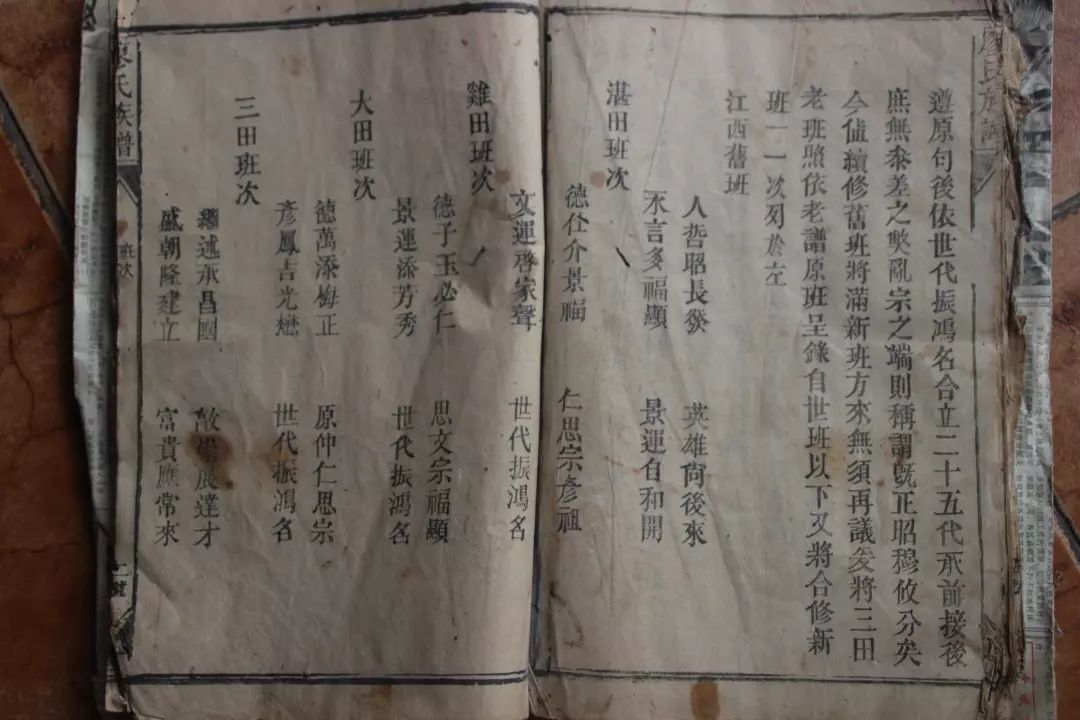 遵原句後依世代振鴻名合立二十五代承前接後
庶無紊差之獘亂宗之端則稱謂旣正昭穆攸分矣
今値續修舊班將滿新班方來無須再議爰將三田
老班照依老譜原班呈錄自世班以下又將合修新
班一一次列於左
江西舊班
人哲昭長發 英雄尙後來
永言多福顯 景運自和開
湛田班次
德仕介景福 仁思宗彥祖
文運啓家聲 世代振鴻名
雞田班次
德子玉必仁 思文宗福顯
景運添芳秀 世代振鴻名
大田班次
德萬添梅正 原仲仁思宗
彥鳳吉光懋 世代振鴻名
三田班次
繼述承昌國 敦崇展達才
盛朝隆建立 富貴應常來
廖氏族譜
班次